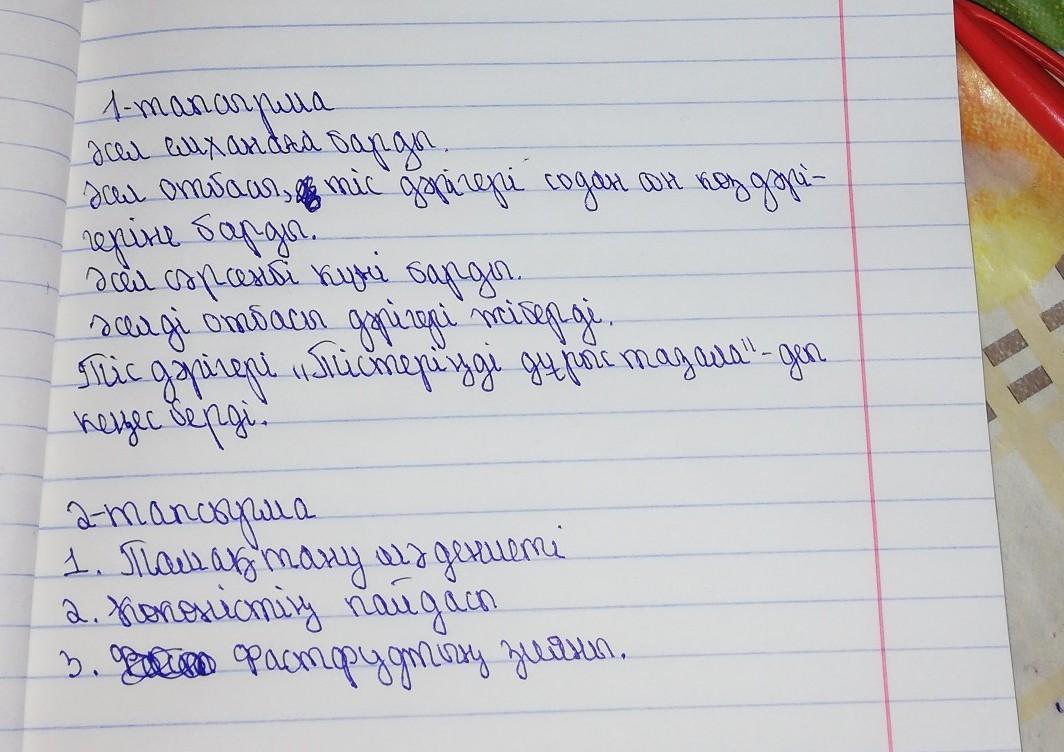 1-тапсырма
Әсел емханана барды.
Әсел отбасы, тіс дәрігері содан сон көз дәрі-
геріне барды.
Әсел сәрсенбі күні барды.
Әселді отбасы дәрігері жіберді.
Тіс дәрігері „Тістеріңді дұрыс тазала"-деп
кеңес берді.
2-тапсырма
1. Тамақтану мәдениеті
2. Көкөністің пайдасы
3. Фастфудтың зияны.